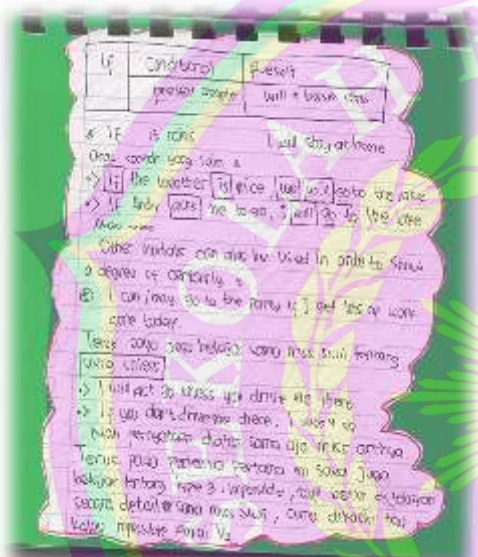 If | Conditional | Result
present simple | will + base verb
* If it rains I will stay at home
yang sama
•> If the weather is nice, we will go to the lake
•> If Andy me to go, I will go to the
Other modals can also be used in order to show
a degree of certainty
I can/may go to the party if I get lots of work
done today.
Terus saya juga belajar sama miss Suwi tentang
using unless
•> I will not go unless you drive me there
•> If you don't drive me there, I won't go
Nah pernyataan diatas sama aja miss artinya
Terus pada pertama ini saya juga
belajar tentang type 3. impossible,
secara detail sama miss Suwi, cuma
kalau impossible pakai V3
SEKOLAH